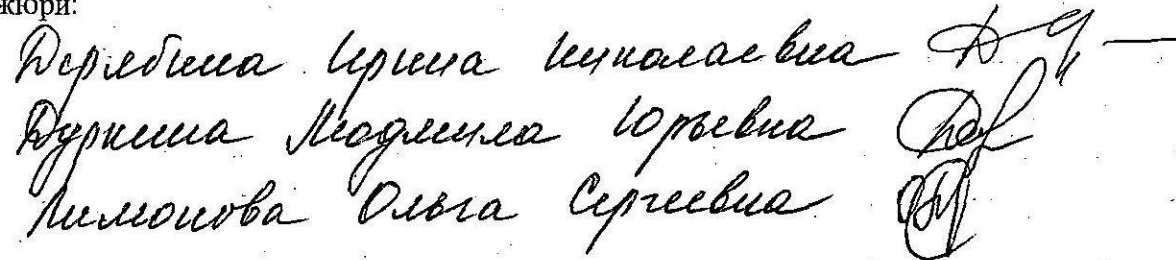 жюри:
Дерябина Ирина Николаевна
Дуркина Людмила Юрьевна
Лимонова Ольга Сергеевна